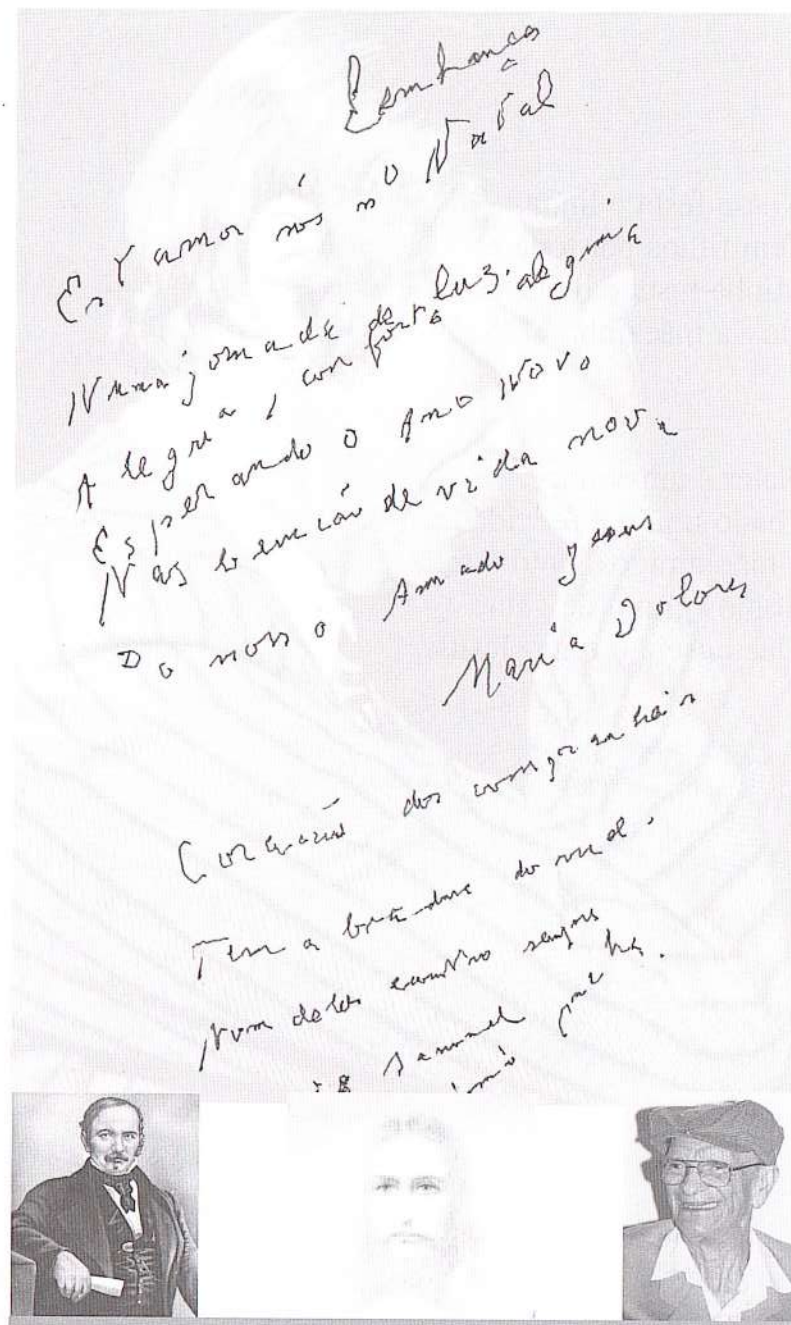 Lembrança
Estamos nós no Natal
Numa jornada de luz. alegria
Alegria, conforto
Esperando o Ano Novo
Nas benção de vida nova
Do nosso Amado Jesus
Maria Dolores
Coração dos
Tem a do mel.
Num deles encontro sempre